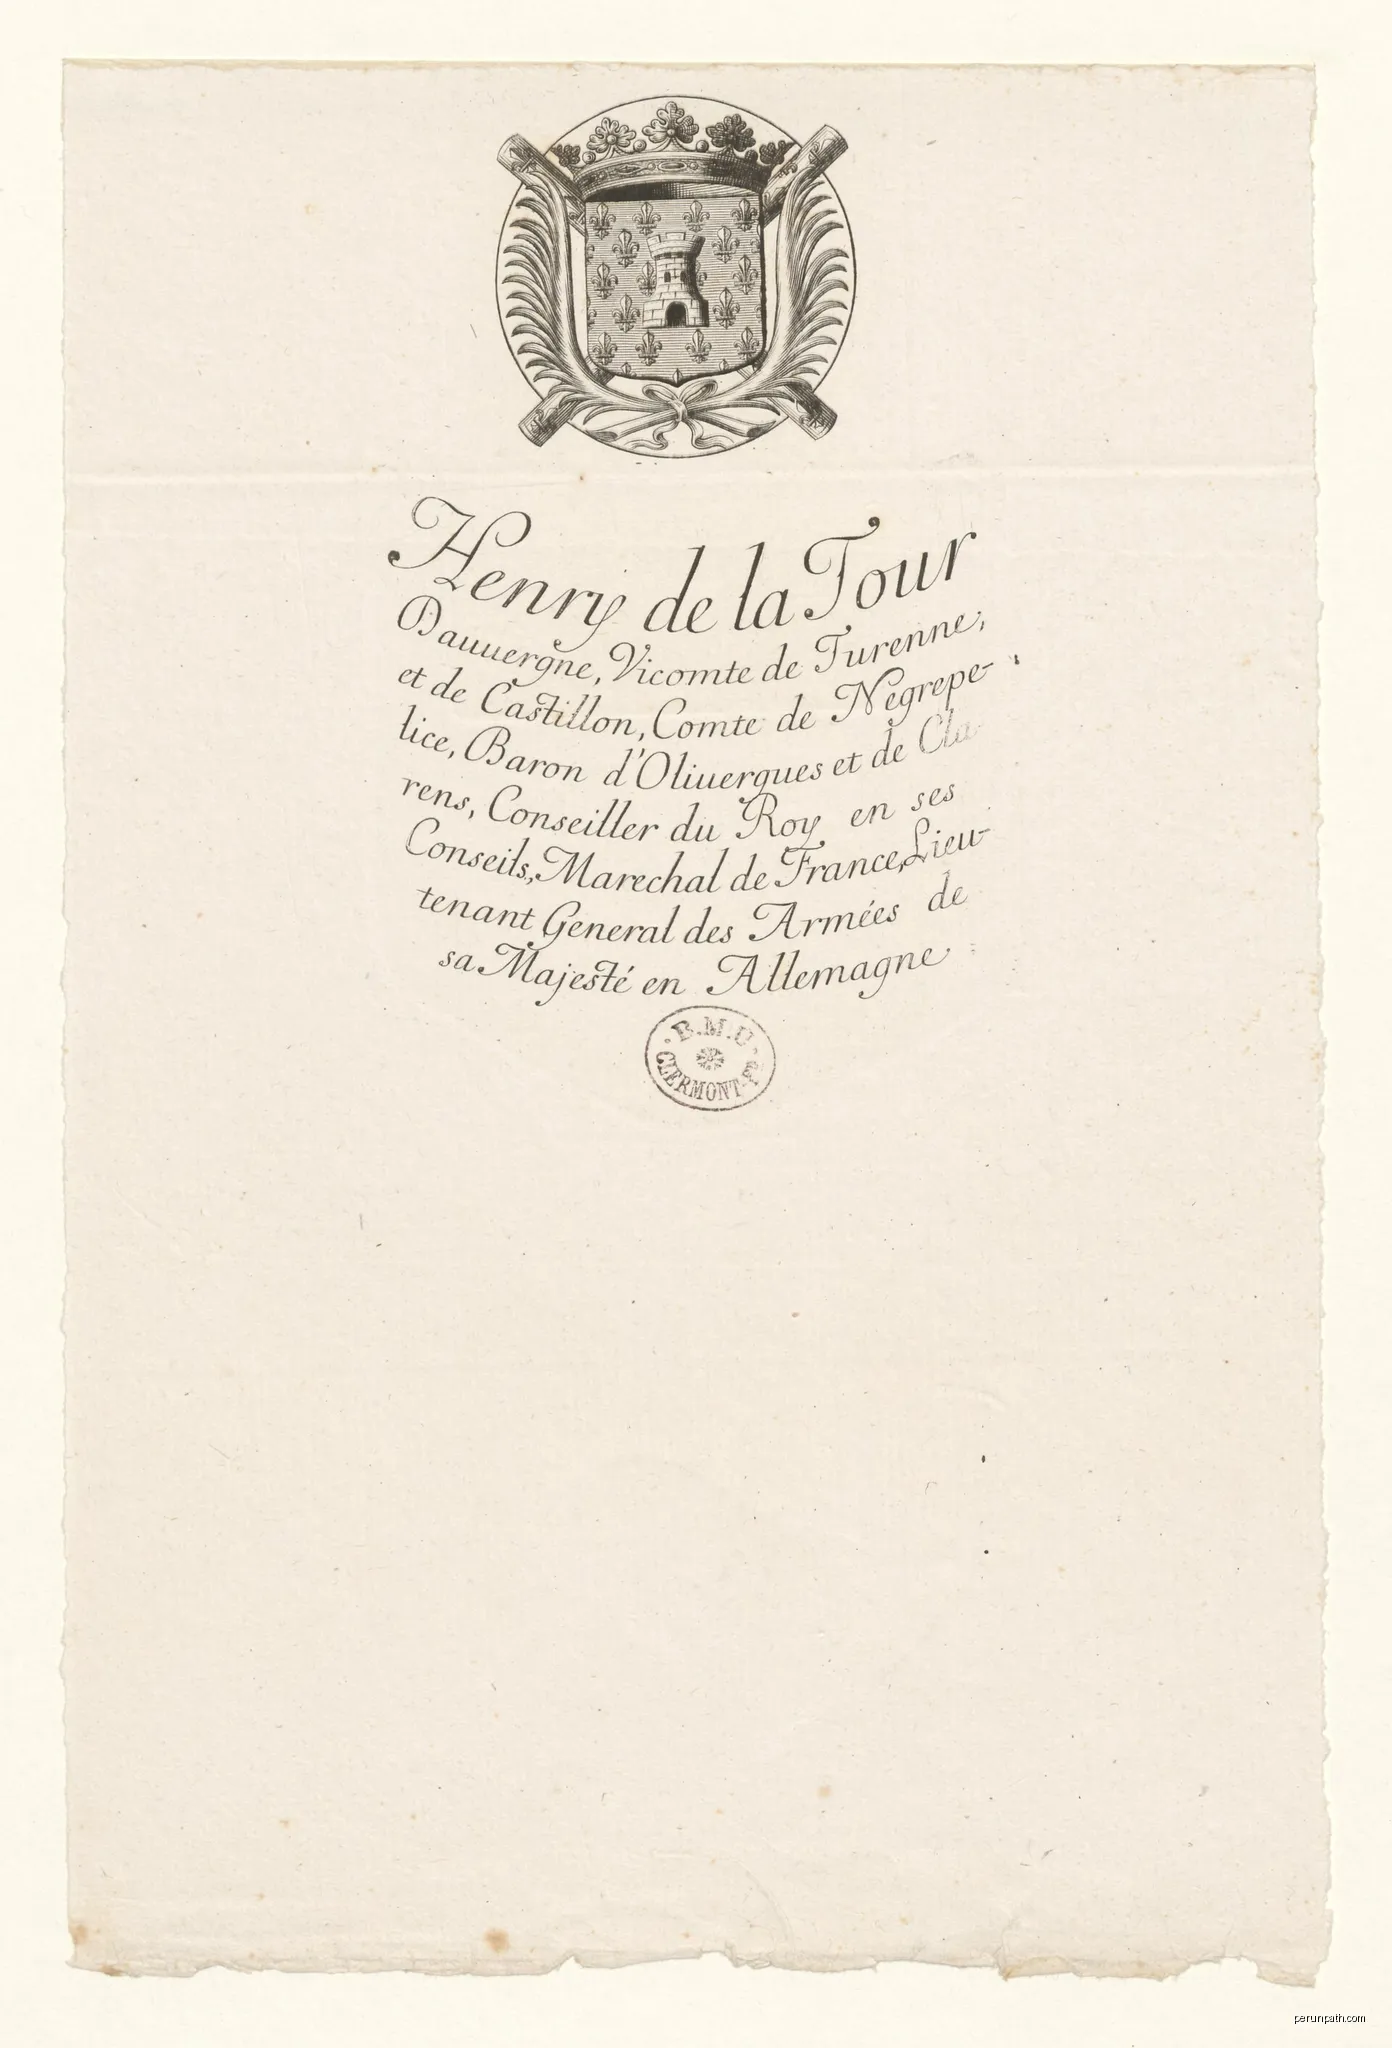 Henry de la Tour
Dauuergne, Vicomte de Turenne,
et de Castillon, Comte de Negrepe-
lice, Baron d'Oliuergues et de Cla
rens, Conseiller du Roy en ses
Conseils, Marechal de France, Lieu-
tenant General des Armées de
sa Majesté en Allemagne
B.M.U
CLERMONT-FD
perunpath.com